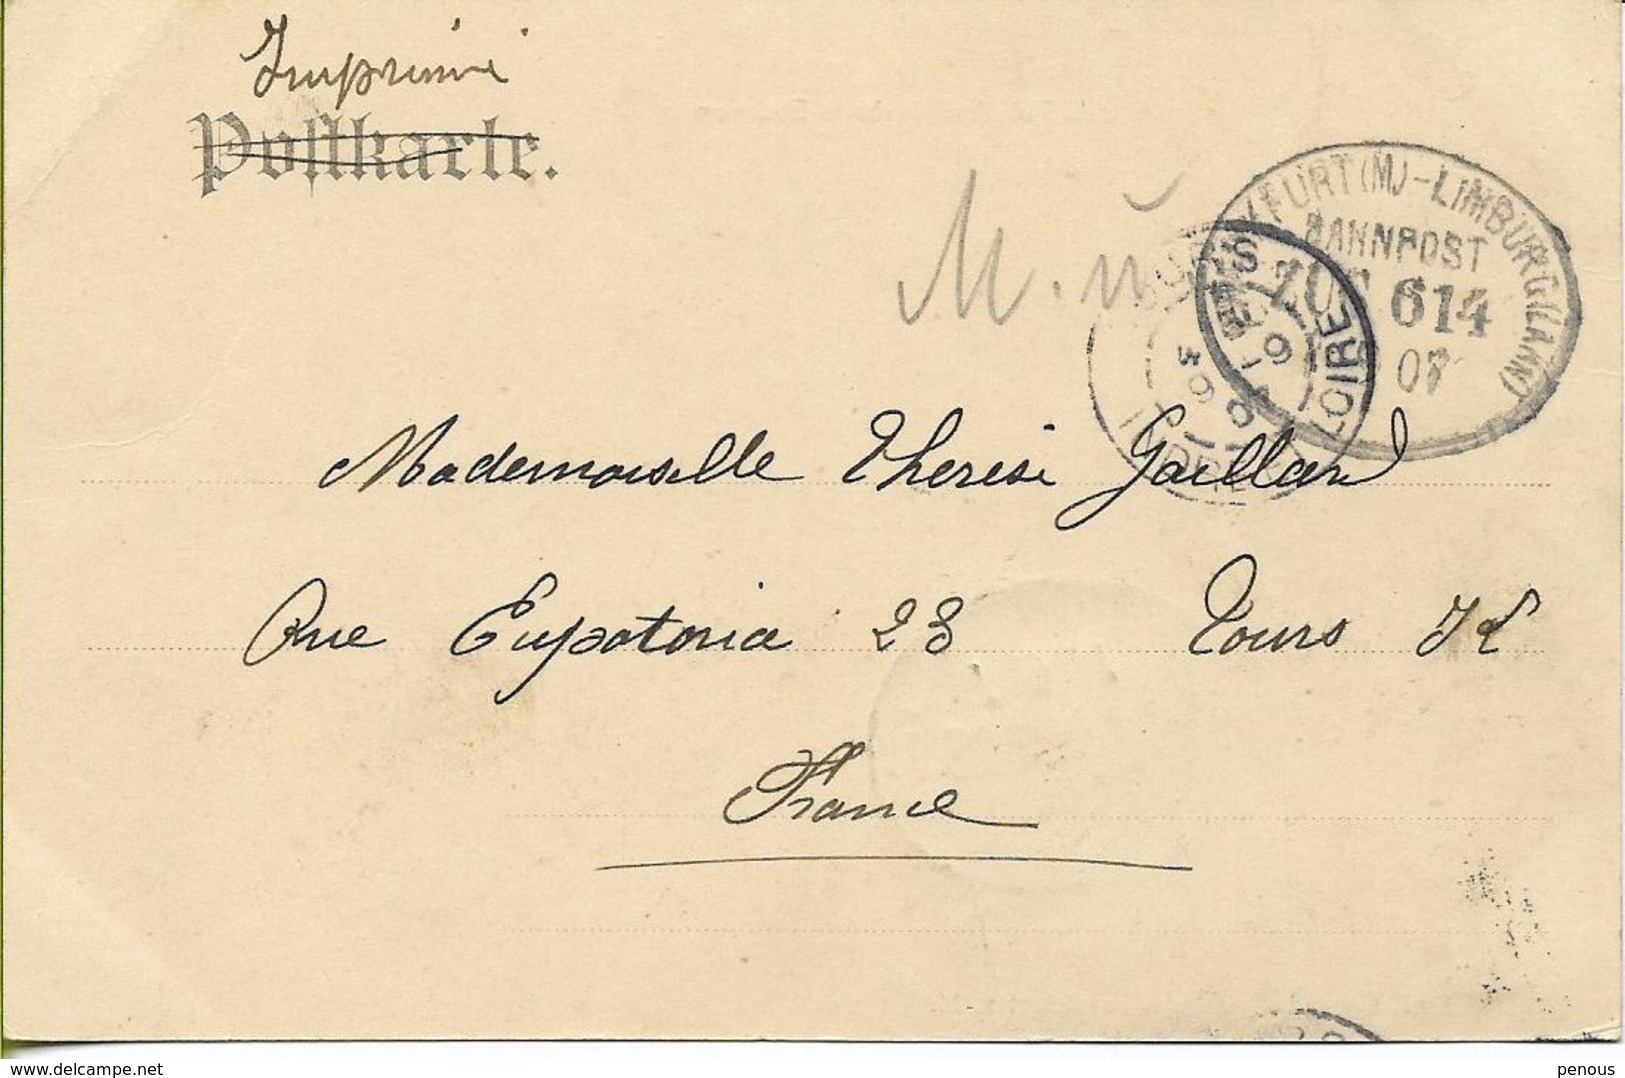 Imprimé
Postkarte.
M.
FRANKFURT (M) - LIMBURG (LAHN)
BAHNPOST
ZUG 614
07
TOURS
INDRE ET LOIRE
Mademoiselle Therese Gaillard
Rue Eupatoria 23 Tours I L
France
delcampe.net
penous